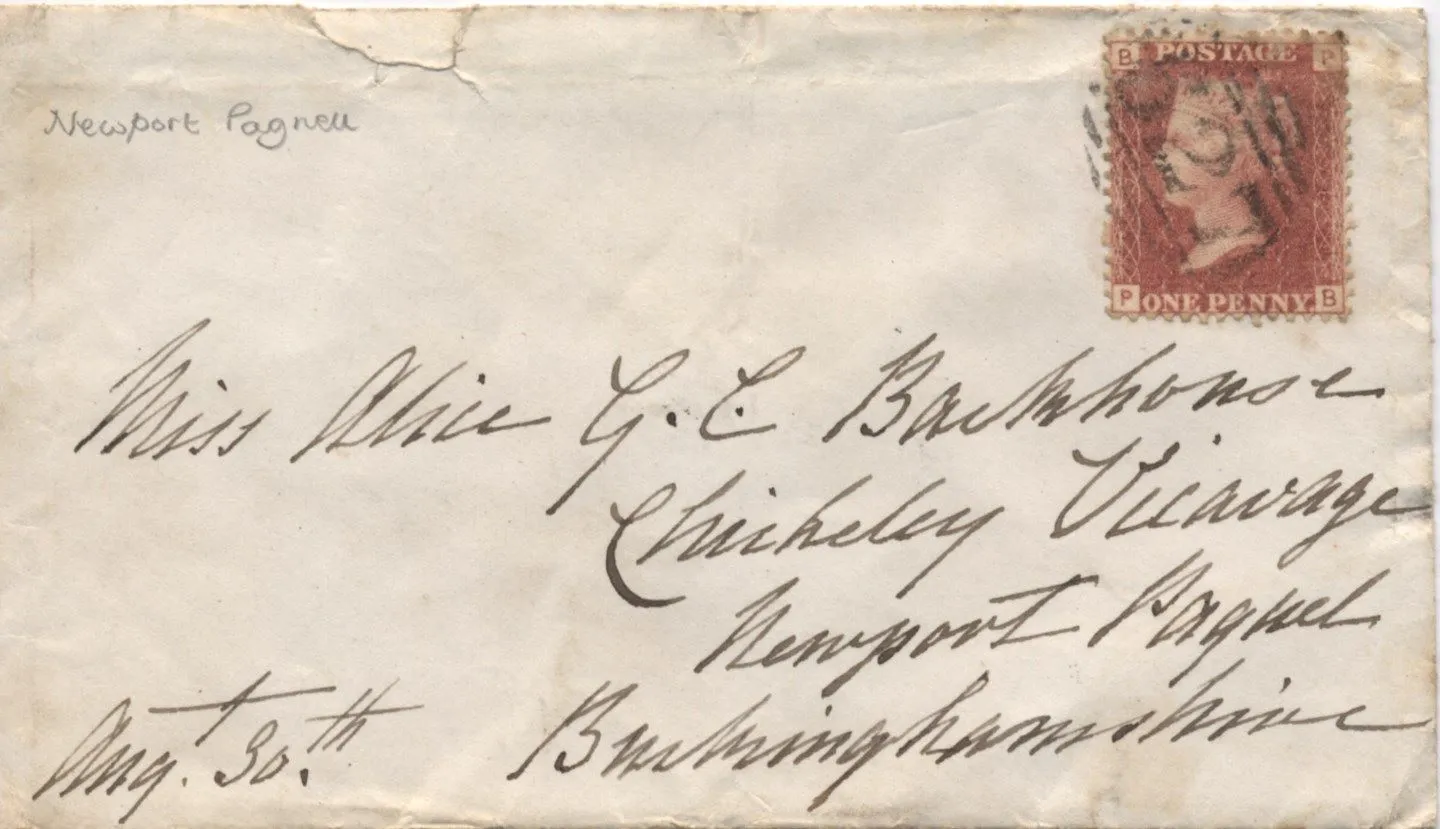 Newport Pagnell
B POSTAGE P
P ONE PENNY B
Miss Alice G. C Backhouse
Chicheley Vicarage
Newport Pagnel
Buckinghamshire
Augt. 30.th